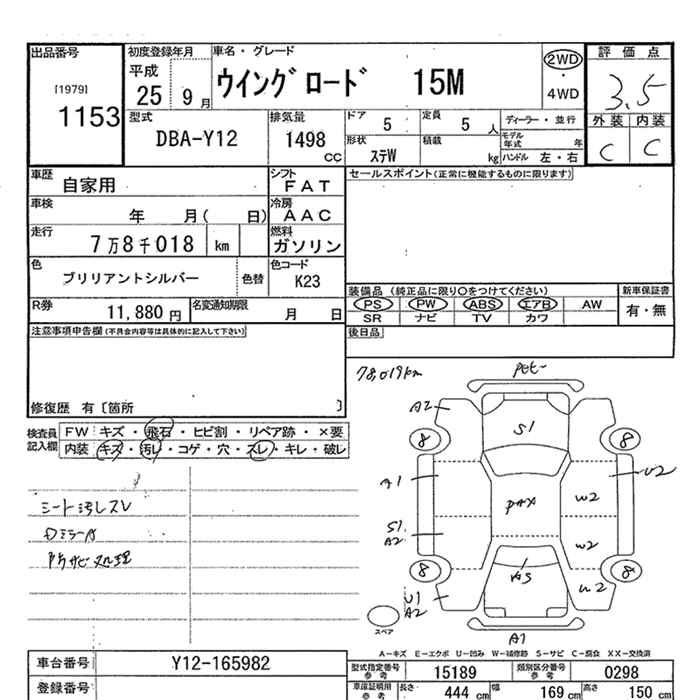 出品番号
[1979]
1153
初度登録年月
平成
25 9 月
車名・グレード
ウイングロード 15M
2WD
・
4WD
評価点
3.5
外装 内装
C C
型式
DBA-Y12
排気量
1498
CC
ドア
5
定員
5 人
ディーラー・並行
モデル年式 年
形状
ステW
積載
kg
ハンドル 左・右
車歴
自家用
シフト
FAT
セールスポイント(正常に機能するものに限ります)
車検
年 月( 日)
冷房
AAC
走行
7万8千018 km
燃料
ガソリン
色
ブリリアントシルバー
色替
色コード
K23
装備品 (純正品に限り○をつけてください)
新車保証書
PS PW ABS エアB AW
有・無
SR ナビ TV カワ
R券
11,880 円
名変通知期限
月 日
後日品
注意事項申告欄(不具合内容等は具体的に記入して下さい)
修復歴 有〔箇所 〕
78,019km
検査員記入欄
FW キズ・飛石・ヒビ割・リペア跡・×要
内装 キズ・汚レ・コゲ・穴・スレ・キレ・破レ
シート汚レスレ
防サビ処理
A2
S1
8
8
A1
U2
W2
S1
A2
W2
8
8
U1
A2
U2
A1
スペア
A-キズ E-エクボ U-凹み W-補修跡 S-サビ C-腐食 XX-交換済
車台番号
Y12-165982
型式指定番号
15189
類別区分番号
0298
登録番号
車庫証明用参考
長さ 444 cm
幅 169 cm
高さ 150 cm